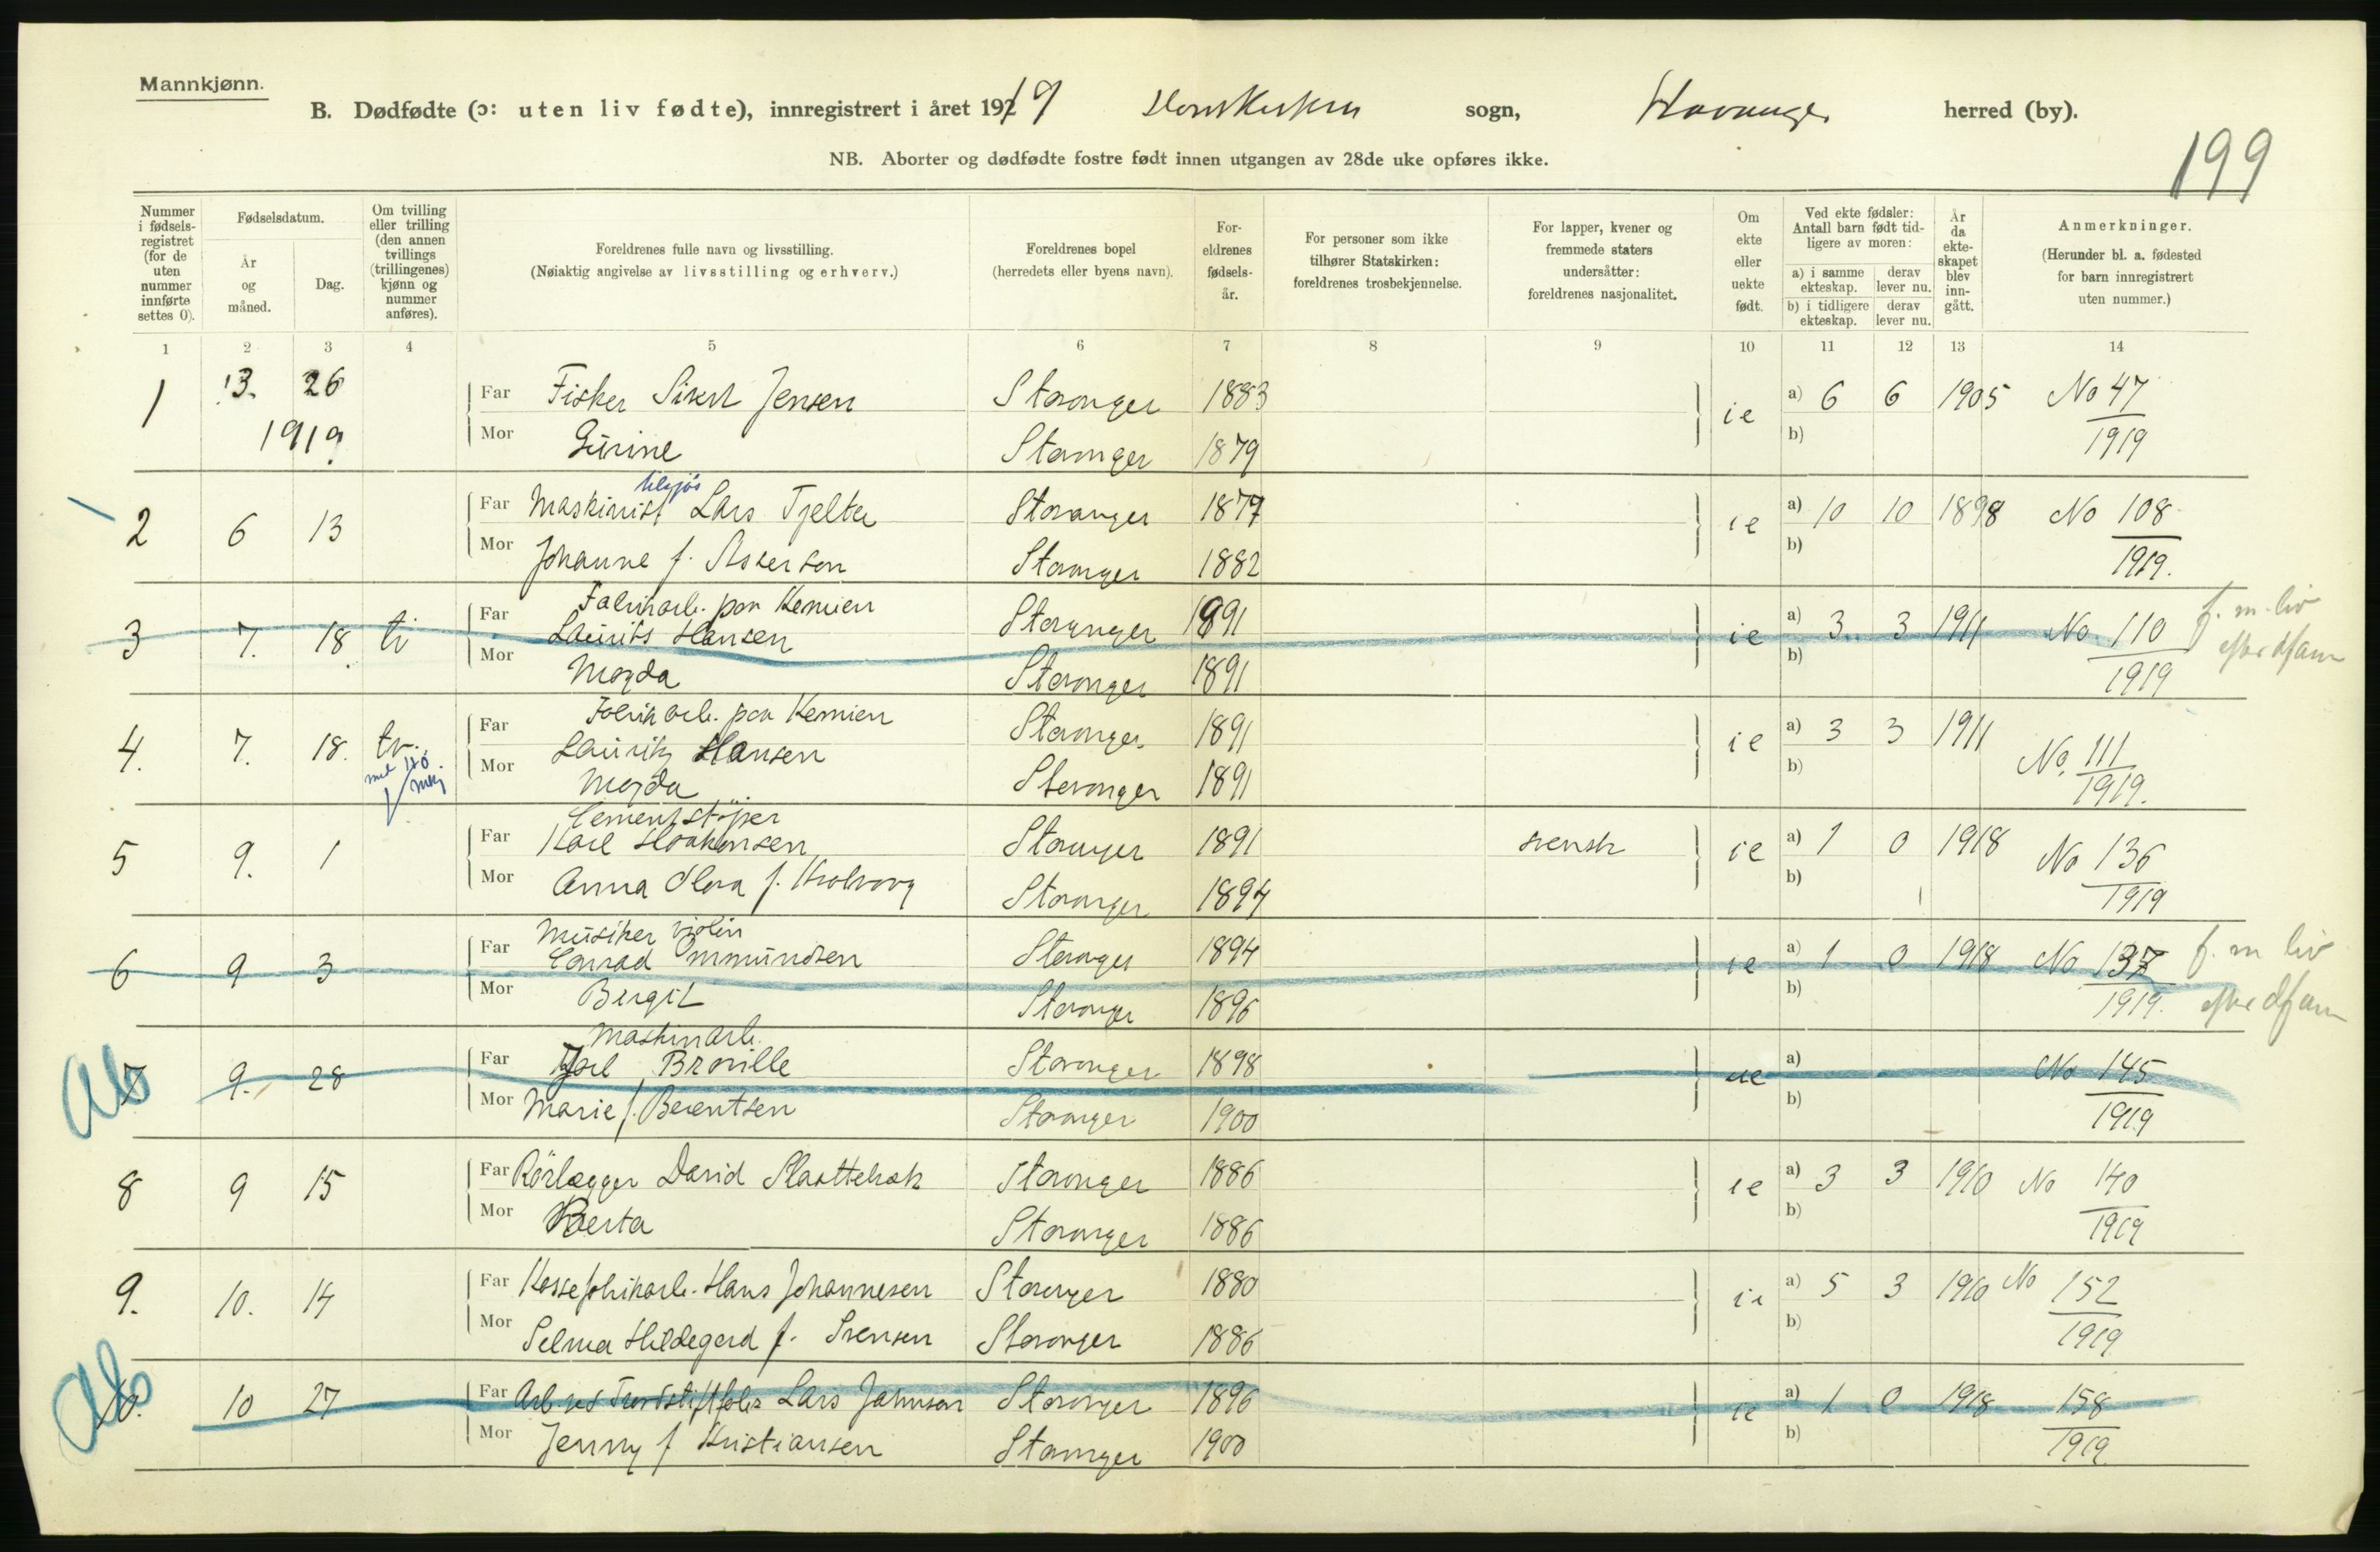 Mannkjønn.
B. Dødfødte (ɔ: uten liv fødte), innregistrert i året 1919 Domkirken sogn, Stavanger herred (by).
199
NB. Aborter og dødfødte fostre født innen utgangen av 28de uke opføres ikke.
Nummer i fødselsregistret (for de uten nummer innførte settes 0).
Fødselsdatum.
År og måned.
Dag.
Om tvilling eller trilling (den annen tvillings (trillingenes) kjønn og nummer anføres).
Foreldrenes fulle navn og livsstilling.
(Nøiaktig angivelse av livsstilling og erhverv.)
Foreldrenes bopel
(herredets eller byens navn).
Foreldrenes fødselsår.
For personer som ikke tilhører Statskirken: foreldrenes trosbekjennelse.
For lapper, kvener og fremmede staters undersåtter: foreldrenes nasjonalitet.
Om ekte eller uekte født.
Ved ekte fødsler: Antall barn født tidligere av moren:
a) i samme ekteskap.
derav lever nu.
b) i tidligere ekteskap.
derav lever nu.
År da ekteskapet blev inngått.
Anmerkninger.
(Herunder bl. a. fødested for barn innregistrert uten nummer.)
1 2 3 4 5 6 7 8 9 10 11 12 13 14
1 3. 26 Far Fisker Sivert Jensen Stavanger 1883 ie a) 6 6 1905 No 47
1919 Mor Gurine Stavanger 1879 b) 1919
2 6 13 Far Maskinist tilsjøs Lars Tjelta Stavanger 1877 ie a) 10 10 1898 No 108
Mor Johanne f. Aserson Stavanger 1882 b) 1919.
3 7. 18 tv Far Fabrikarb. paa Kemien Stavanger 1891 ie a) 3 3 1911 No 110 f. m. liv
Laurits Hansen
Mor Magda Stavanger 1891 b) 1919
4. 7. 18. tv. Far Fabrikarb. paa Kemien Stavanger 1891 ie a) 3 3 1911 No. 111
med 110. Lauritz Hansen
Mor Magda Stavanger 1891 b) 1919.
5 9. 1 Far Cementstøper
Karl Haakonsen Stavanger 1891 svensk ie a) 1 0 1918 No 136
Mor Anna Olava f. Stavanger 1894 b) 1919
6 9 3 Far Musiker violin
Conrad Ommundsen Stavanger 1894 ie a) 1 0 1918 No 137 f. m liv
Mor Birgit Stavanger 1896 b) 1919.
Ab 7 9. 28 Far Maskinarb.
Karl Stavanger 1898 ue a) No 145
Mor Marie f. Berentsen Stavanger 1900 b) 1919
8 9 15 Far Rörlægger David Slaattebræk Stavanger 1886 ie a) 3 3 1910 No 140
Mor Berta Stavanger 1886 b) 1919
9. 10. 14 Far Kassefabrikarb. Hans Johannesen Stavanger 1880 ie a) 5 3 1910 No 152
Mor Selma Hildegard f. Svensen Stavanger 1886 b) 1919
Ab 10. 10 27 Far Arb ved Lars Johnson Stavanger 1896 ie a) 1 0 1918 158
Mor Jenny f Kristiansen Stavanger 1900 b) 1919